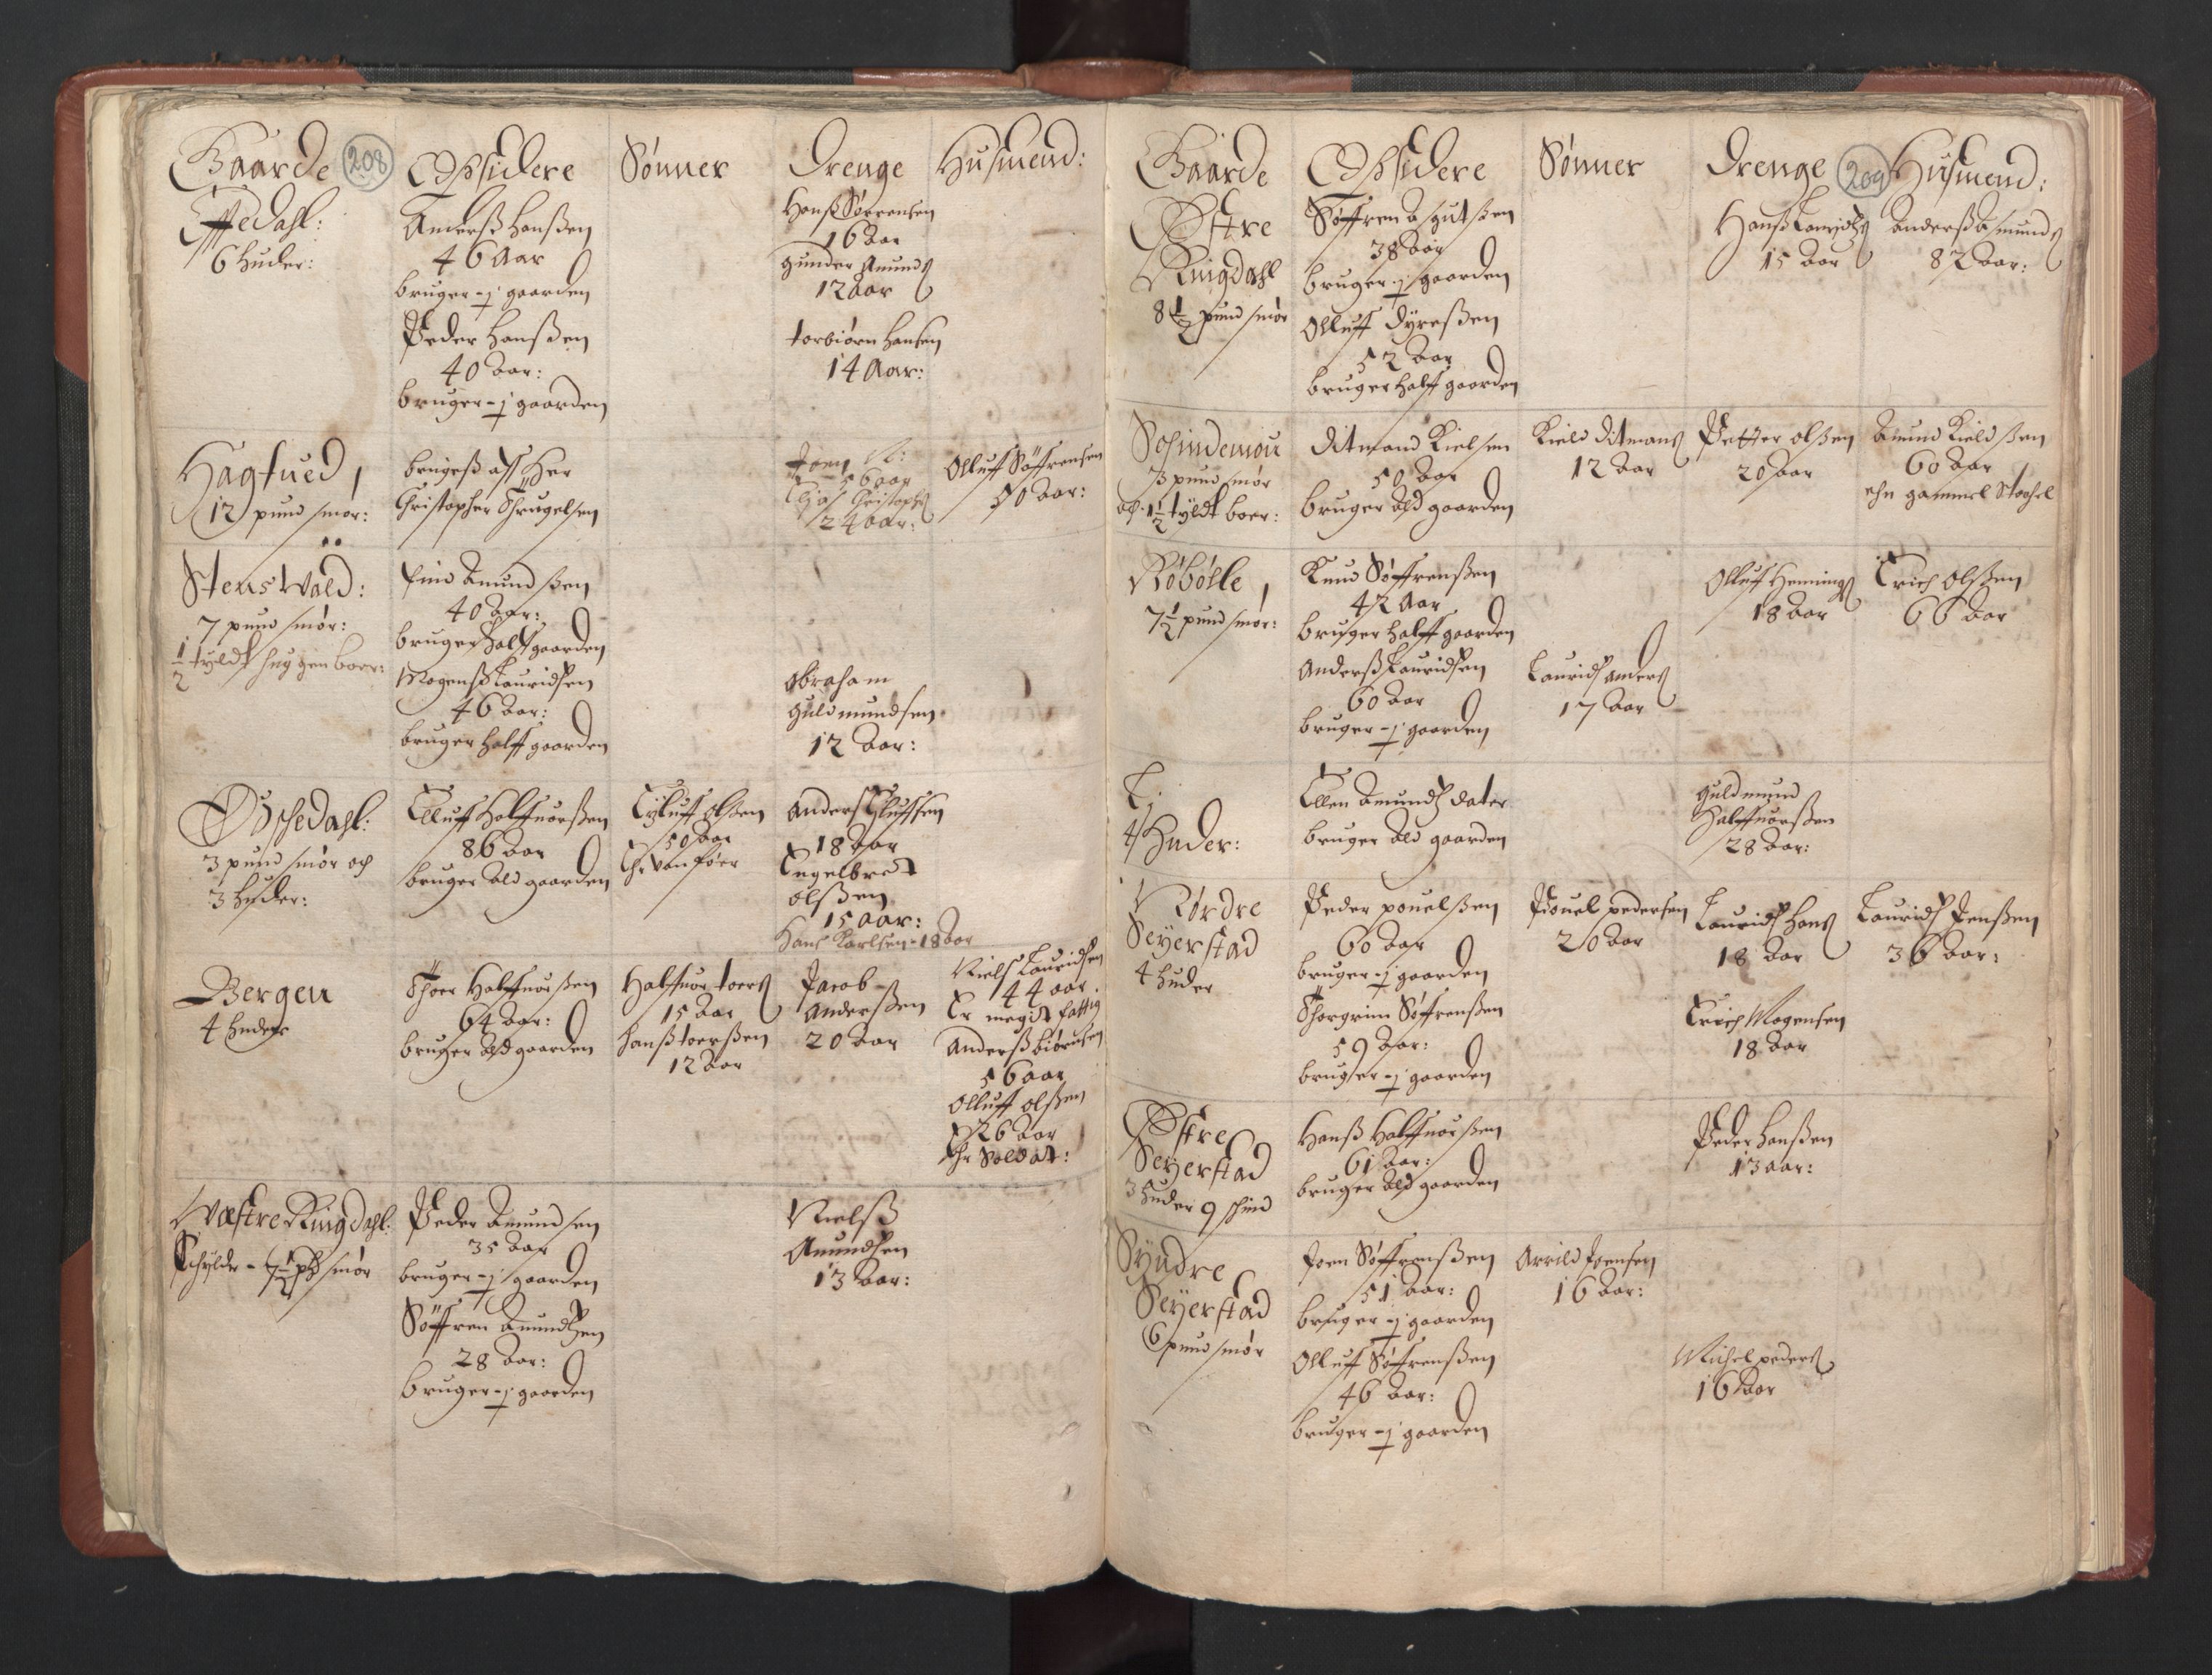 Gaarde 208 Opsidere Sønner Drenge Husmend:
Effedahl:
6 huder:
Anderß Hanßen
46 Aar
bruger ½ gaarden
Peder Hanßen
40 Aar:
bruger ½ gaarden
Hanß Sørrensen
16 Aar
Gunder Amunds
12 aar
torbiørn Hansen
14 Aar:
Hagtued,
12 pund smør:
brugeß aff Her
Christopher Thrugelsen
56 aar
Elias Christophers
24 aar:
Olluff Søffrensen
50 aar:
Stens Wald:
7 pund smør:
½ tyldt huggen boer:
Find Amundßen
40 Aar:
bruger halff gaarden
Mogenß Lauridsen
46 Aar:
bruger halff gaarden
Abraham
Guldmundsen
12 Aar:
Øschedahl:
3 pund smør och
3 huder:
Elluff Halfuorßen
86 Aar
bruger Ald gaarden
Eyluff olßen
50 Aar
Ehr vanføer
Anders Eyluffsen
18 Aar
Engelbret
olßen
15 Aar:
Hans Karlsen - 18 Aar
Bergen
4 huder
Thoer Halfuorßen
64 Aar:
bruger Ald gaarden
Halfuor toers
15 Aar
Hanß toerßen
12 Aar
Jacob
Anderßen
20 Aar
Niels Lauridsen
44 aar.
Er megit fattig
Anderß biørnsen
56 aar
Olluff olßen
26 Aar
Ehr Soldat:
Wæstre Ringdahl:
Schylder - 7½ pd smør
Peder Amundsen
35 Aar
bruger ½ gaarden
Søffren Amundßen
28 Aar:
bruger ½ gaarden
Nielß
Amundsen
13 Aar:
Gaarde Opsidere Sønner Drenge 209 Husmend:
Østre
Ringdahl
8½ pund smør
Søffren Asgutsßen
38 Aar
bruger ½ gaarden
Olluff Dyreßen
52 Aar
bruger halff gaarden
Hanß Lauridtz
15 Aar
Anderß Amunds
82 Aar:
Schindemou
3 pund smør
och 1½ tyldt boer:
Ditmand Kielsen
50 Aar
bruger Ald gaarden
Kield Ditmans
12 Aar
Petter olßen
20 aar
Amund Kieldßen
60 Aar
ehn gammel Stachel
Røbølle,
7½ pund smør:
Knud Søffrenßen
42 Aar
bruger halff gaarden
Anderß Lauridsen
60 Aar
bruger ½ gaarden
Laurids Anders
17 Aar
Olluf Hennings
18 Aar
Erich olßen
66 Aar
Ej.
4 Huder:
Ellen Amunds dater
bruger Ald gaarden
Guldmund
Halffuorßen
28 Aar:
Nørdre
Seyerstad
4 huder
Peder pouelßen
60 Aar
bruger ½ gaarden
Thorgrim Søffrenßen
59 Aar:
bruger ½ gaarden
Pouel pedersen
20 Aar
Laurids Hans
18 Aar
Erich Mogensen
18 Aar
Laurids Jenßen
36 Aar:
Østre
Seyerstad
3 huder 9 schind
Hanß Halffuorßen
61 Aar:
bruger Ald gaarden
Peder Hanßen
13 aar:
Syndre
Seyerstad
6 pund smør
Joen Søffrenßen
51 Aar:
bruger ½ gaarden
Olluff Søffrenßen
46 Aar:
bruger ½ gaarden
Arrild Joensen
16 Aar:
Michel peders
16 Aar